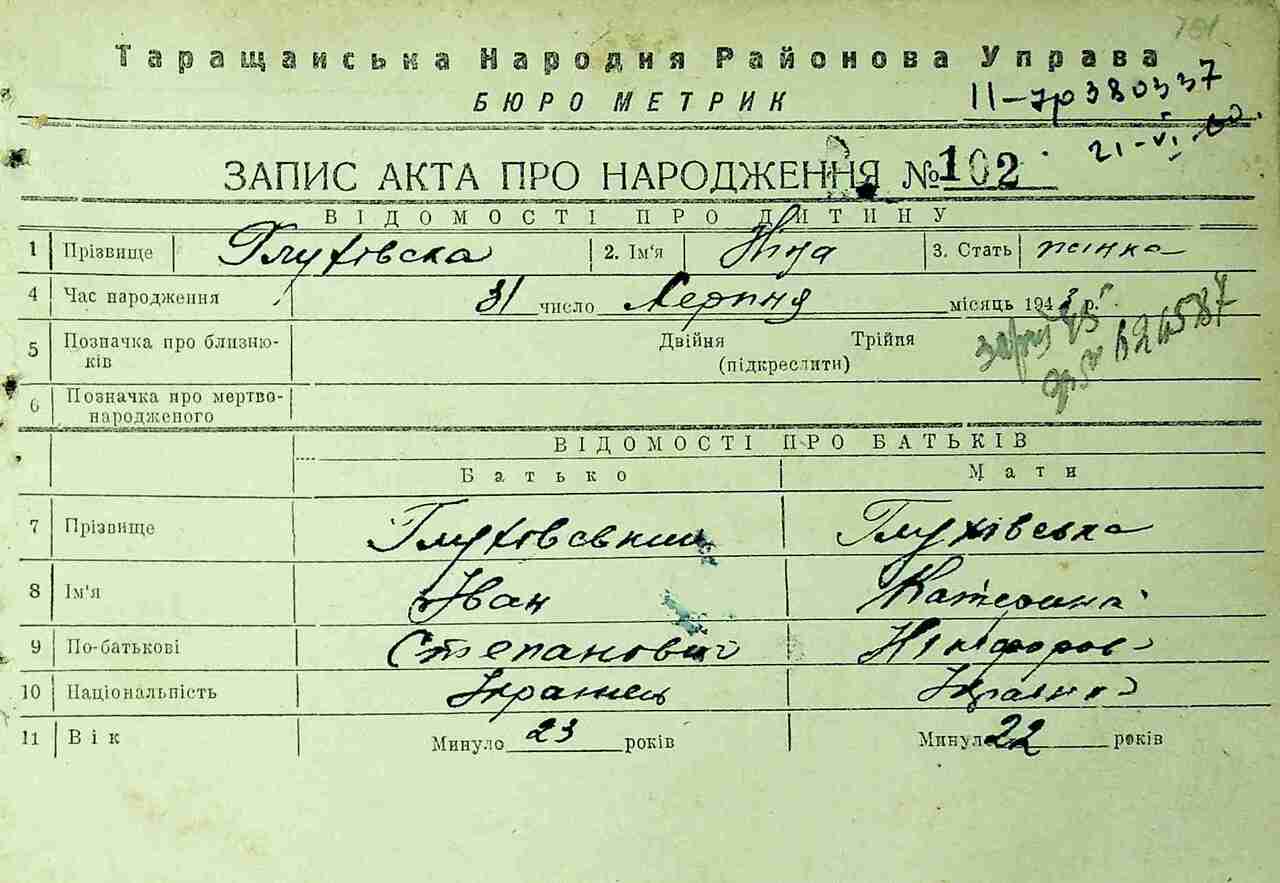 101
Таращанська Народня Районова Управа
БЮРО МЕТРИК
II-ЧР380337
21-VI-60.
ЗАПИС АКТА ПРО НАРОДЖЕННЯ №102
ВІДОМОСТІ ПРО ДИТИНУ
1 Прізвище Глуховска 2. Ім'я Ніна 3. Стать жінка
4 Час народження 31 число Серпня місяць 1943 р.
5 Позначка про близнюків Двійня Трійня
(підкреслити)
6 Позначка про мертвонародженого
ВІДОМОСТІ ПРО БАТЬКІВ
Батько Мати
7 Прізвище Глуховський Глухівська
8 Ім'я Іван Катерина
9 По-батькові Степанович Нікіфоров
10 Національність Українець
11 Вік Минуло 23 років Минуло 22 років